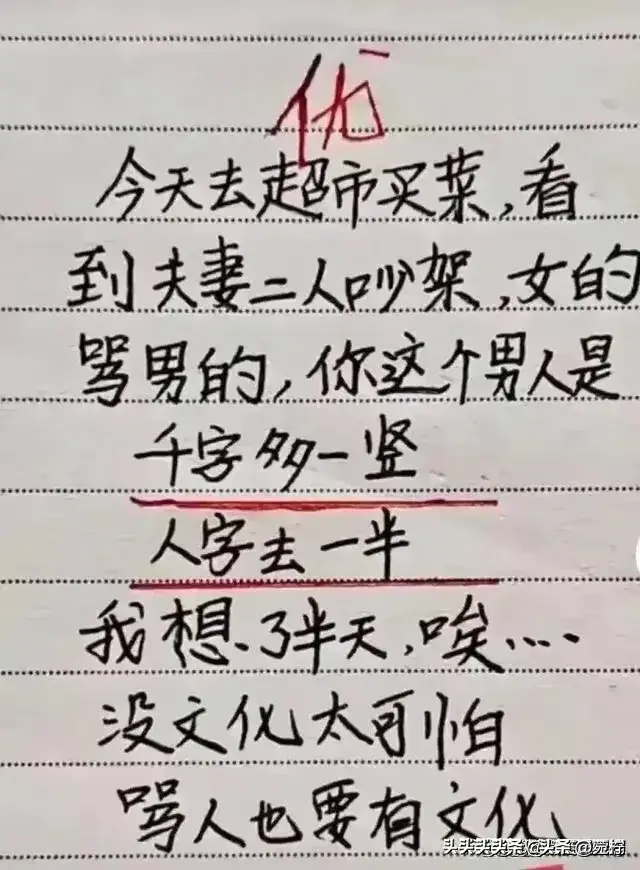 优
今天去超市买菜,看
到夫妻二人吵架,女的
骂男的,你这个男人是
千字多一竖
人字去一半
我想了半天,唉….
没文化太可怕
骂人也要有文化